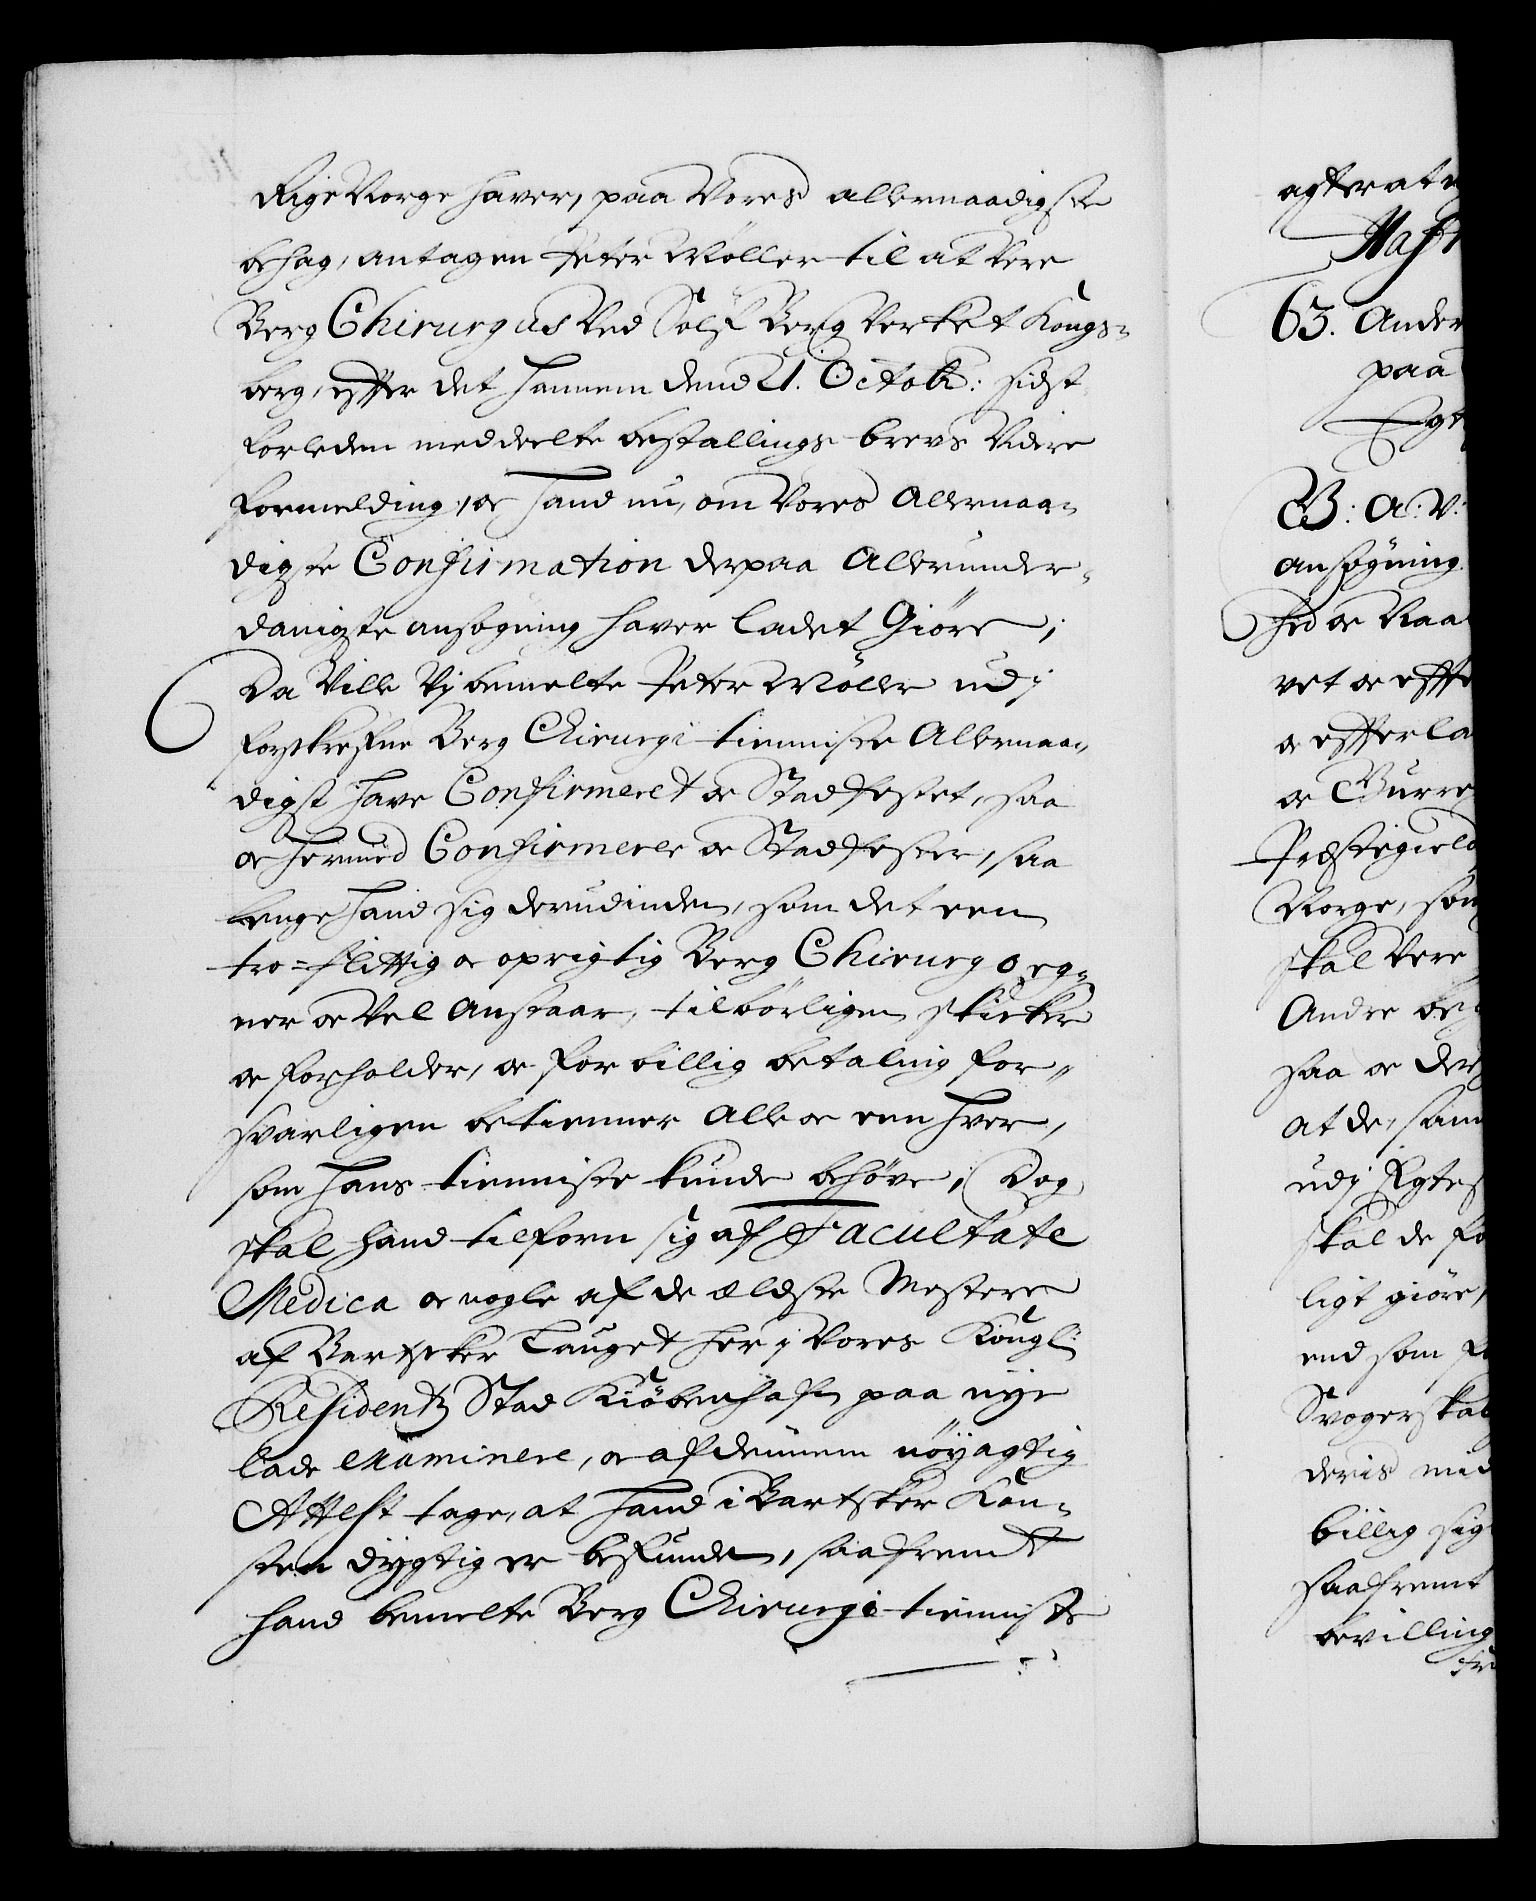 Rige Norge haver, paa Vores allernaadigste
behag, antagen Peter Møller til at Vere
Berg Chirurgus Ved Sølf Berg Verket Kongs-
berg, effter det hannem dend 21. Octobr: sidst
forleden meddeelte bestallings brevs Videre
formelding, oc hand nu, om Vores Allernaa-
digste Confirmation derpaa Allerunder-
danigste ansøgning haver ladet Giöre;
Da Ville Vj bemelte Peter Møller udj
forskrefne Berg Chirurgi tienniste Allernaa-
digst have Confirmeret oc Stadfestet, saa
oc hermed Confirmerer oc Stadfester, saa
lenge hand sig derudinden, som det een
tro- flittig oc oprigtig Berg Chirurgo eg-
ner oc Vel Anstaar, tilbörligen skicker
oc forholder, oc for billig betaling for-
svarligen betienner Alle oc een hver,
som hans tienniste kunde behöve; Dog
skal hand tilforn sig af Facultate
Medica oc nogle af de ældste Mestere
af Bartsker Lauget her j Vores Kongl:
Residentz Stad Kiöbenhafn paa nye
lade examinere, oc af dennem nöyagtig
Attest tage, at hand i Bartsker Kon-
sten dygtig er befunden, saafremt
hand bemelte Berg Chirurgi tienniste
agter at
63. Ander
paa
B: A: V:
ansøgning
hed oc Naa
vet oc effte
oc effterla
oc
Præstegield
Norge, som
skal Vere
Andre
saa oc der
at de, sam
udj Egtes
skal de fo
ligt giöre,
end som f
Svogerskab
deris mid
billig sig
saafremt
bevilling